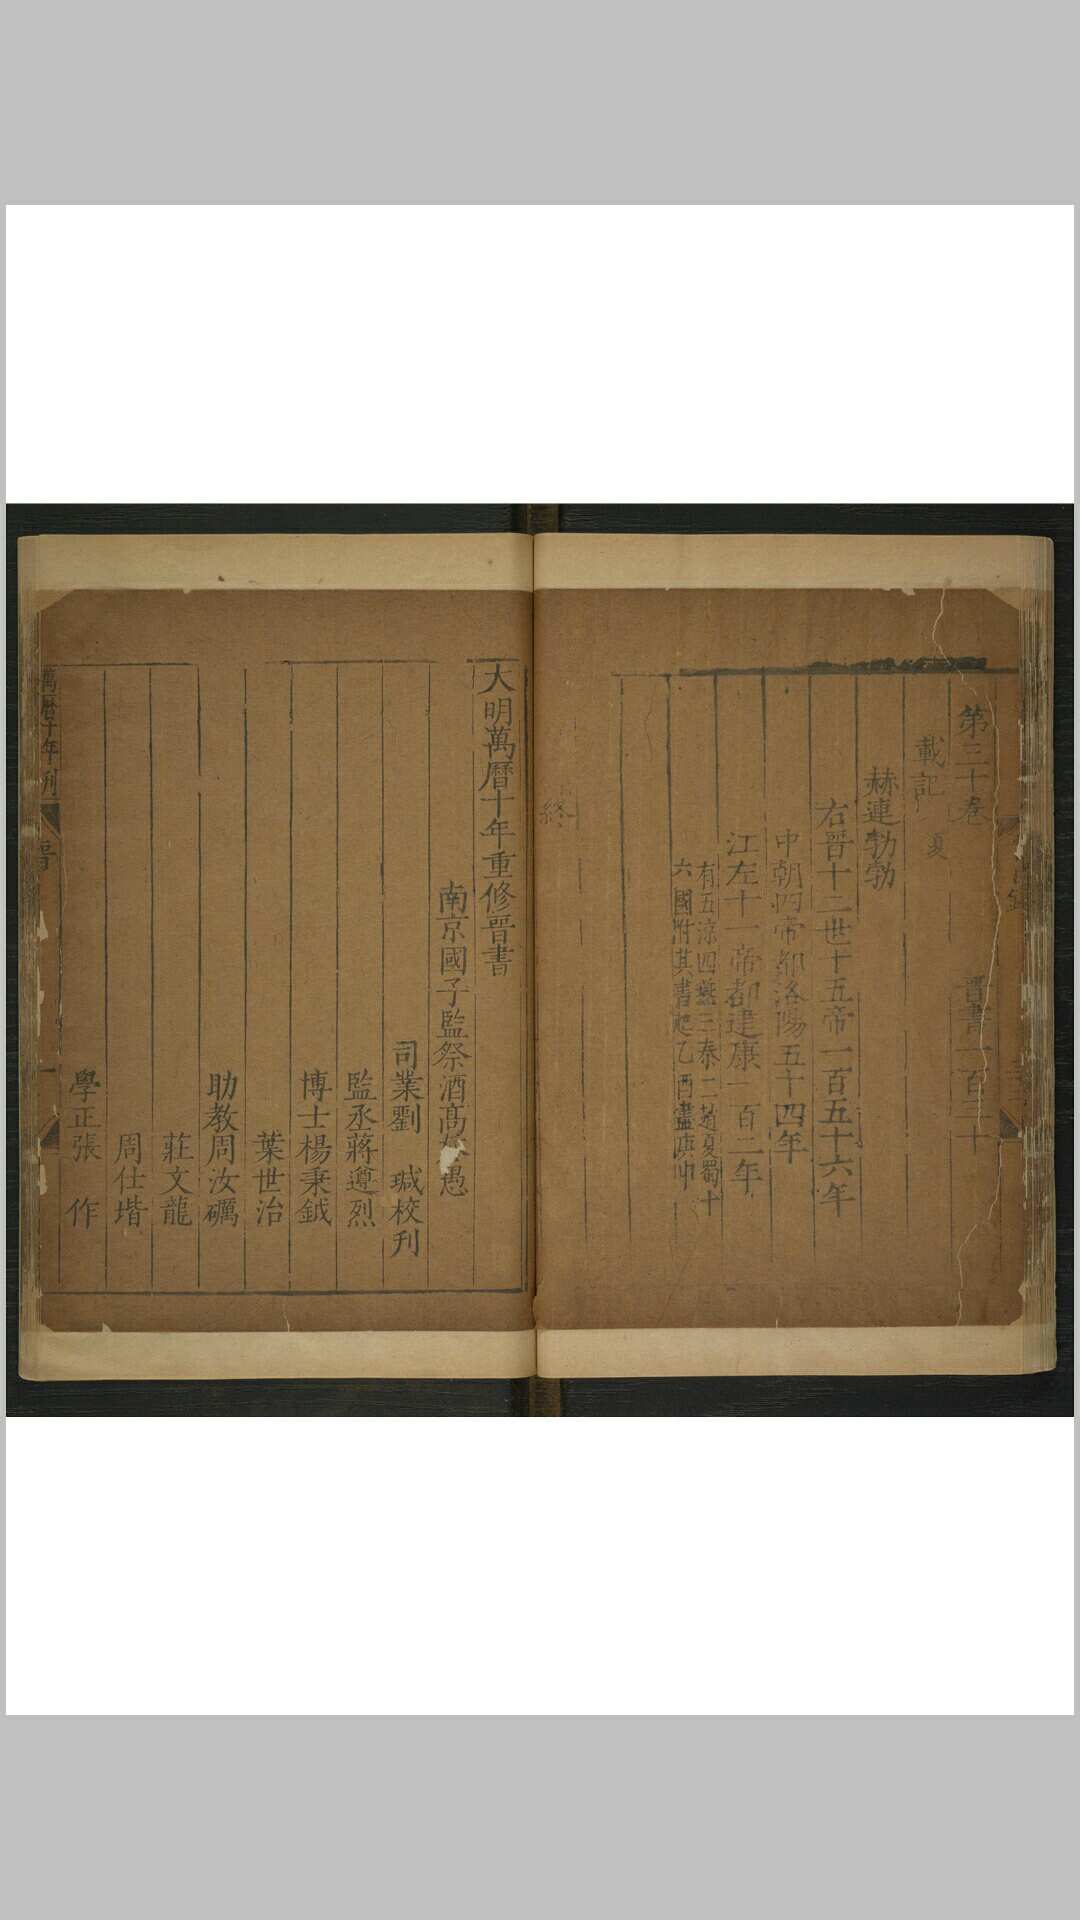 第三十卷 晉書一百三十
載記 夏
赫連勃勃
右晉十二世十五帝一百五十六年
中朝四帝都洛陽五十四年
江左十一帝都建康一百二年
有五涼四燕三秦二趙夏蜀十
六國附其書起乙酉盡庚申
終
大明萬曆十年重修晉書
南京國子監祭酒高 愚
司業劉 瑊校刋
監丞蔣遵烈
博士楊秉鉞
葉世治
助教周汝礪
莊文龍
周仕堦
學正張 作
萬曆十年刋
晉
一